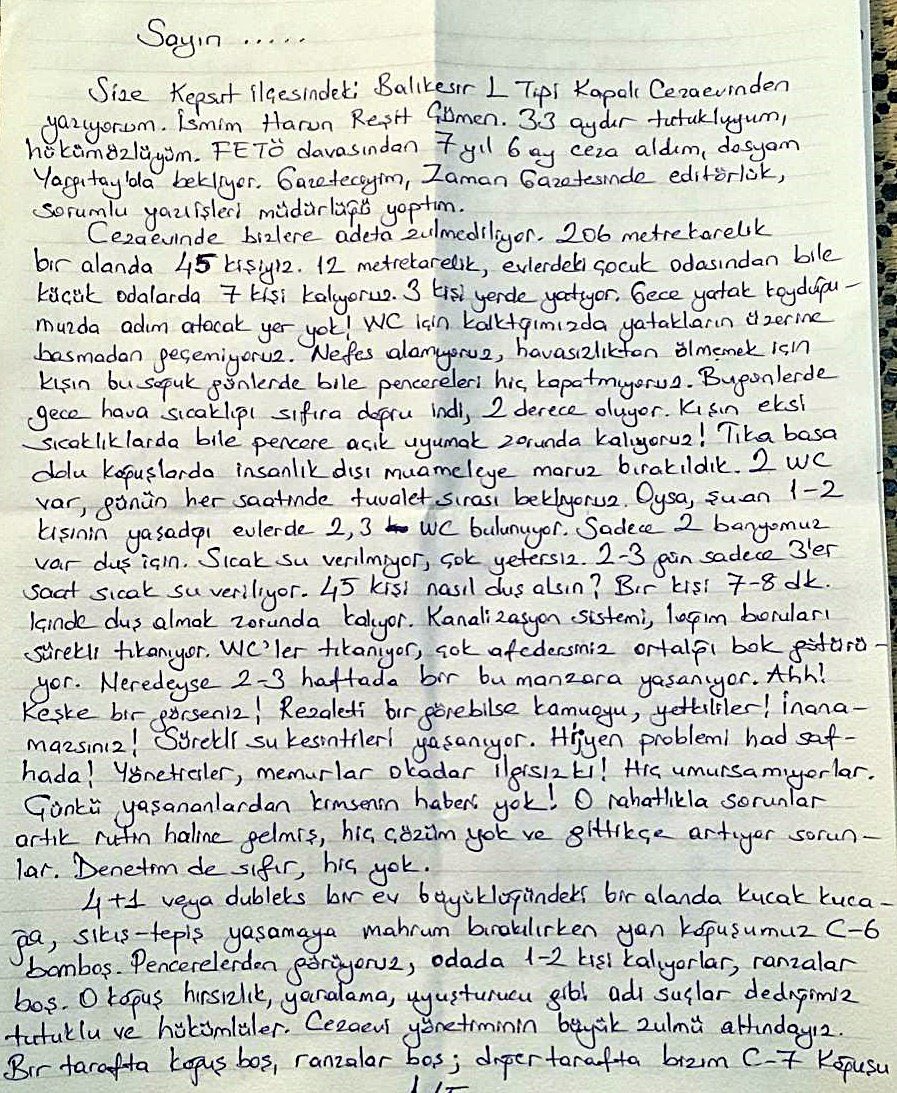 Sayın .....
Size Kepsut ilçesindeki Balıkesir L Tipi Kapalı Cezaevinden
yazıyorum. İsmim Harun Reşit Çümen. 33 aydır tutukluyum,
hükümözlüyüm. FETÖ davasından 7 yıl 6 ay ceza aldım, dosyam
Yargıtay'da bekliyor. Gazeteciyim, Zaman Gazetesinde editörlük,
sorumlu yazıişleri müdürlüğü yaptım.
Cezaevinde bizlere adeta zulmediliyor. 206 metrekarelik
bir alanda 45 kişiyiz. 12 metrekarelik, evlerdeki çocuk odasından bile
küçük odalarda 7 kişi kalıyoruz. 3 kişi yerde yatıyor. Gece yatak koyduğu-
muzda adım atacak yer yok! WC için kalktığımızda yatakların üzerine
basmadan geçemiyoruz. Nefes alamıyoruz, havasızlıktan ölmemek için
kışın bu soğuk günlerde bile pencereleri hiç kapatmıyoruz. Bugünlerde
gece hava sıcaklığı sıfıra doğru indi, 2 derece oluyor. Kışın eksi
sıcaklıklarda bile pencere açık uyumak zorunda kalıyoruz! Tıka basa
dolu koğuşlarda insanlık dışı muameleye maruz bırakıldık. 2 WC
var, günün her saatinde tuvalet sırası bekliyoruz. Oysa, şuan 1-2
kişinin yaşadığı evlerde 2,3 WC bulunuyor. Sadece 2 banyomuz
var duş için. Sıcak su verilmiyor, çok yetersiz. 2-3 gün sadece 3'er
saat sıcak su veriliyor. 45 kişi nasıl duş alsın? Bir kişi 7-8 dk.
içinde duş almak zorunda kalıyor. Kanalizasyon sistemi, lağım boruları
sürekli tıkanıyor. WC'ler tıkanıyor, çok afedersiniz ortalığı bok götürü-
yor. Neredeyse 2-3 haftada bir bu manzara yaşanıyor. Ahh!
Keşke bir görseniz! Rezaleti bir görebilse kamuoyu, yetkililer! İnana-
mazsınız! Sürekli su kesintileri yaşanıyor. Hijyen problemi had saf-
hada! Yöneticiler, memurlar okadar ilgisizki! Hiç umursamıyorlar.
Çünkü yaşananlardan kimsenin haberi yok! O rahatlıkla sorunlar
artık rutin haline gelmiş, hiç çözüm yok ve gittikçe artıyor sorun-
lar. Denetim de sıfır, hiç yok.
4+1 veya dubleks bir ev büyüklüğündeki bir alanda kucak kuca-
ğa, sıkış-tepiş yaşamaya mahrum bırakılırken yan koğuşumuz C-6
bomboş. Pencerelerden görüyoruz, odada 1-2 kişi kalıyorlar, ranzalar
boş. O koğuş hırsızlık, yaralama, uyuşturucu gibi adi suçlar dediğimiz
tutuklu ve hükümlüler. Cezaevi yönetiminin büyük zulmü altındayız.
Bir tarafta koğuş boş, ranzalar boş; diğer tarafta bizim C-7 Koğuşu